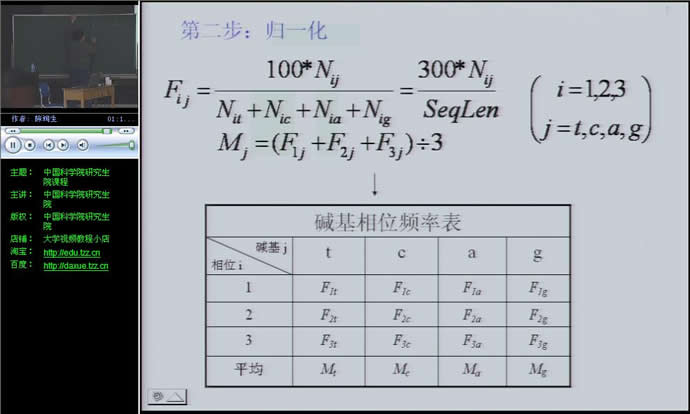 作者：陈润生 01:1...
主题： 中国科学院研究生
院课程
主讲： 中国科学院研究生
院
版权： 中国科学院研究生
院
店铺： 大学视频教程小店
淘宝： http://edu.tzz.cn
百度： http://daxue.tzz.cn
第二步：归一化
F_{ij} = 100*N_{ij} / (N_{it}+N_{ic}+N_{ia}+N_{ig}) = 300*N_{ij} / SeqLen (i=1,2,3 j=t,c,a,g)
M_j = (F_{1j}+F_{2j}+F_{3j})÷3
碱基相位频率表
碱基 j 相位 i t c a g
1 F_{1t} F_{1c} F_{1a} F_{1g}
2 F_{2t} F_{2c} F_{2a} F_{2g}
3 F_{3t} F_{3c} F_{3a} F_{3g}
平均 M_t M_c M_a M_g